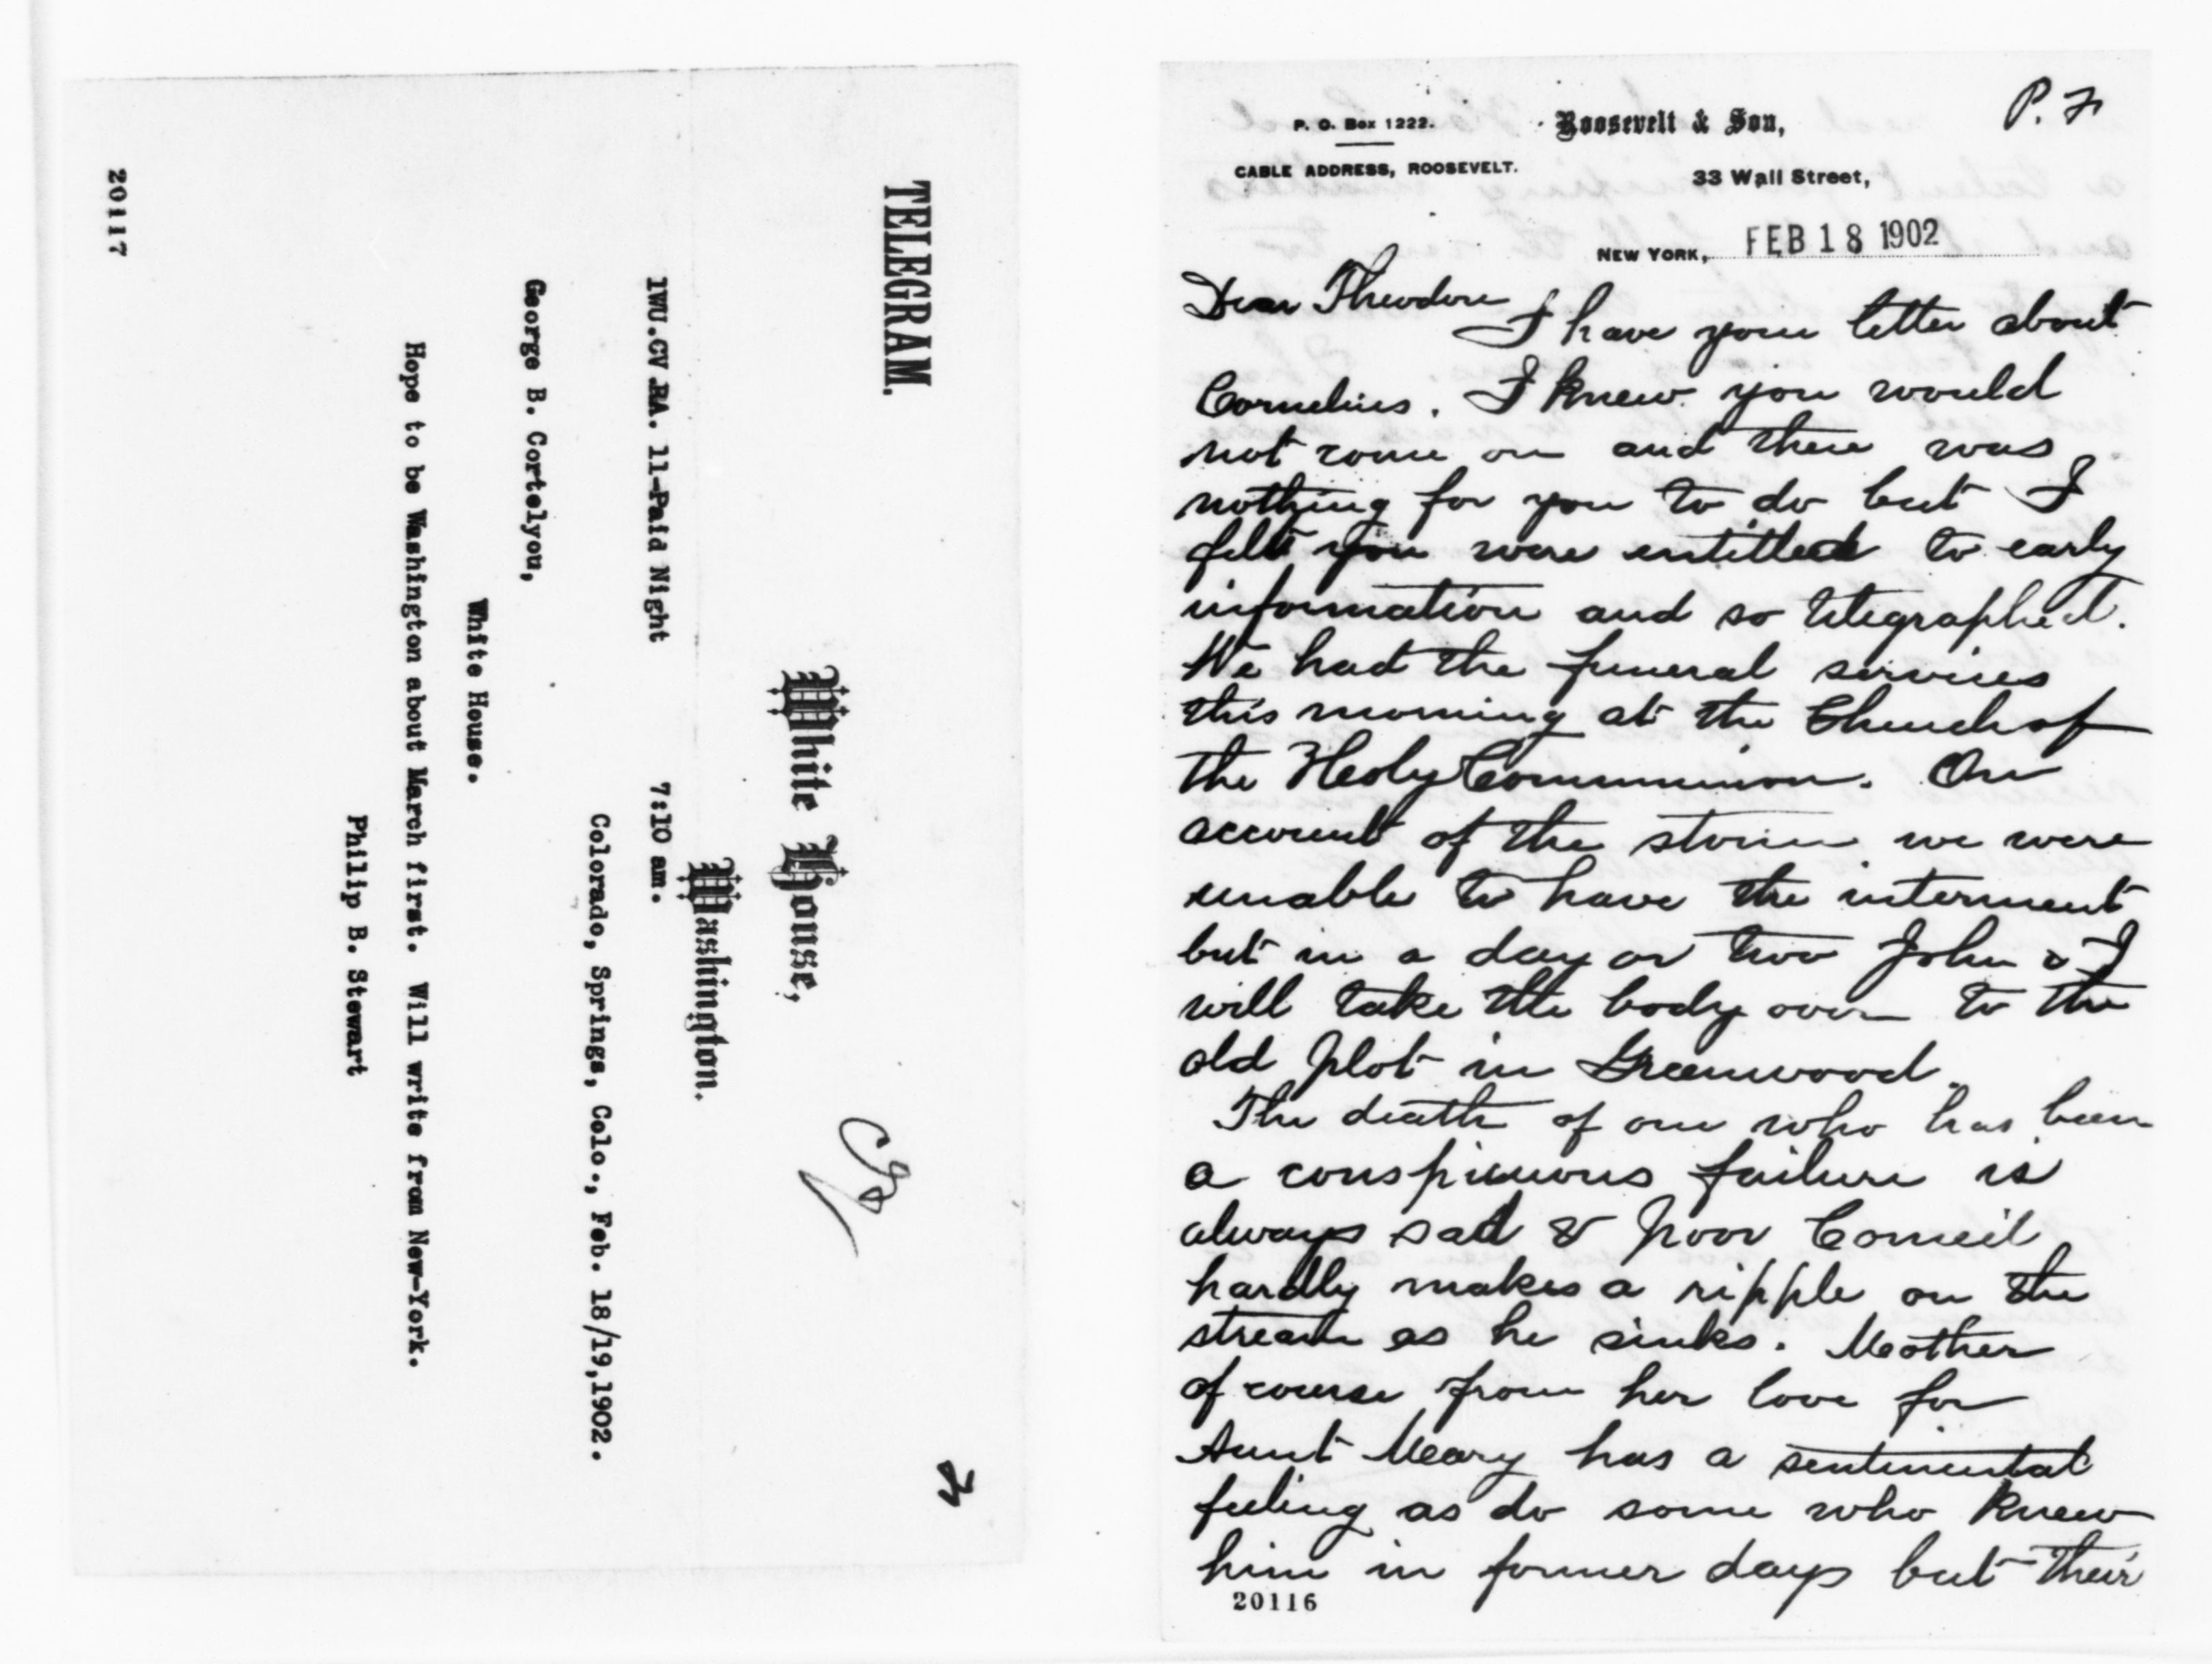 TELEGRAM.
White House,
Washington.
1WU.CV.RA. 11-Paid Night 7:10 am.
Colorado, Springs, Colo., Feb. 18/19,1902.
George B. Cortelyou,
White House.
Hope to be Washington about March first. Will write from New-York.
Philip B. Stewart
20117
P. F
P. O. Box 1222.
Roosevelt & Son,
CABLE ADDRESS, ROOSEVELT.
33 Wall Street,
NEW YORK, FEB 18 1902
Dear Theodore
I have your letter about
Cornelius. I knew you would
not come on and there was
nothing for you to do but I
felt you were entitled to early
information and so telegraphed.
We had the funeral services
this morning at the Church of
the Holy Communion. On
account of the storm we were
unable to have the interment
but in a day or two John & I
will take the body over to the
old plot in Greenwood.
The death of one who has been
a conspicuous failure is
always sad & poor Corneil
hardly makes a ripple on the
stream as he sinks. Mother
of course from her love for
Aunt Mary has a sentimental
feeling as do some who knew
him in former days but their
20116